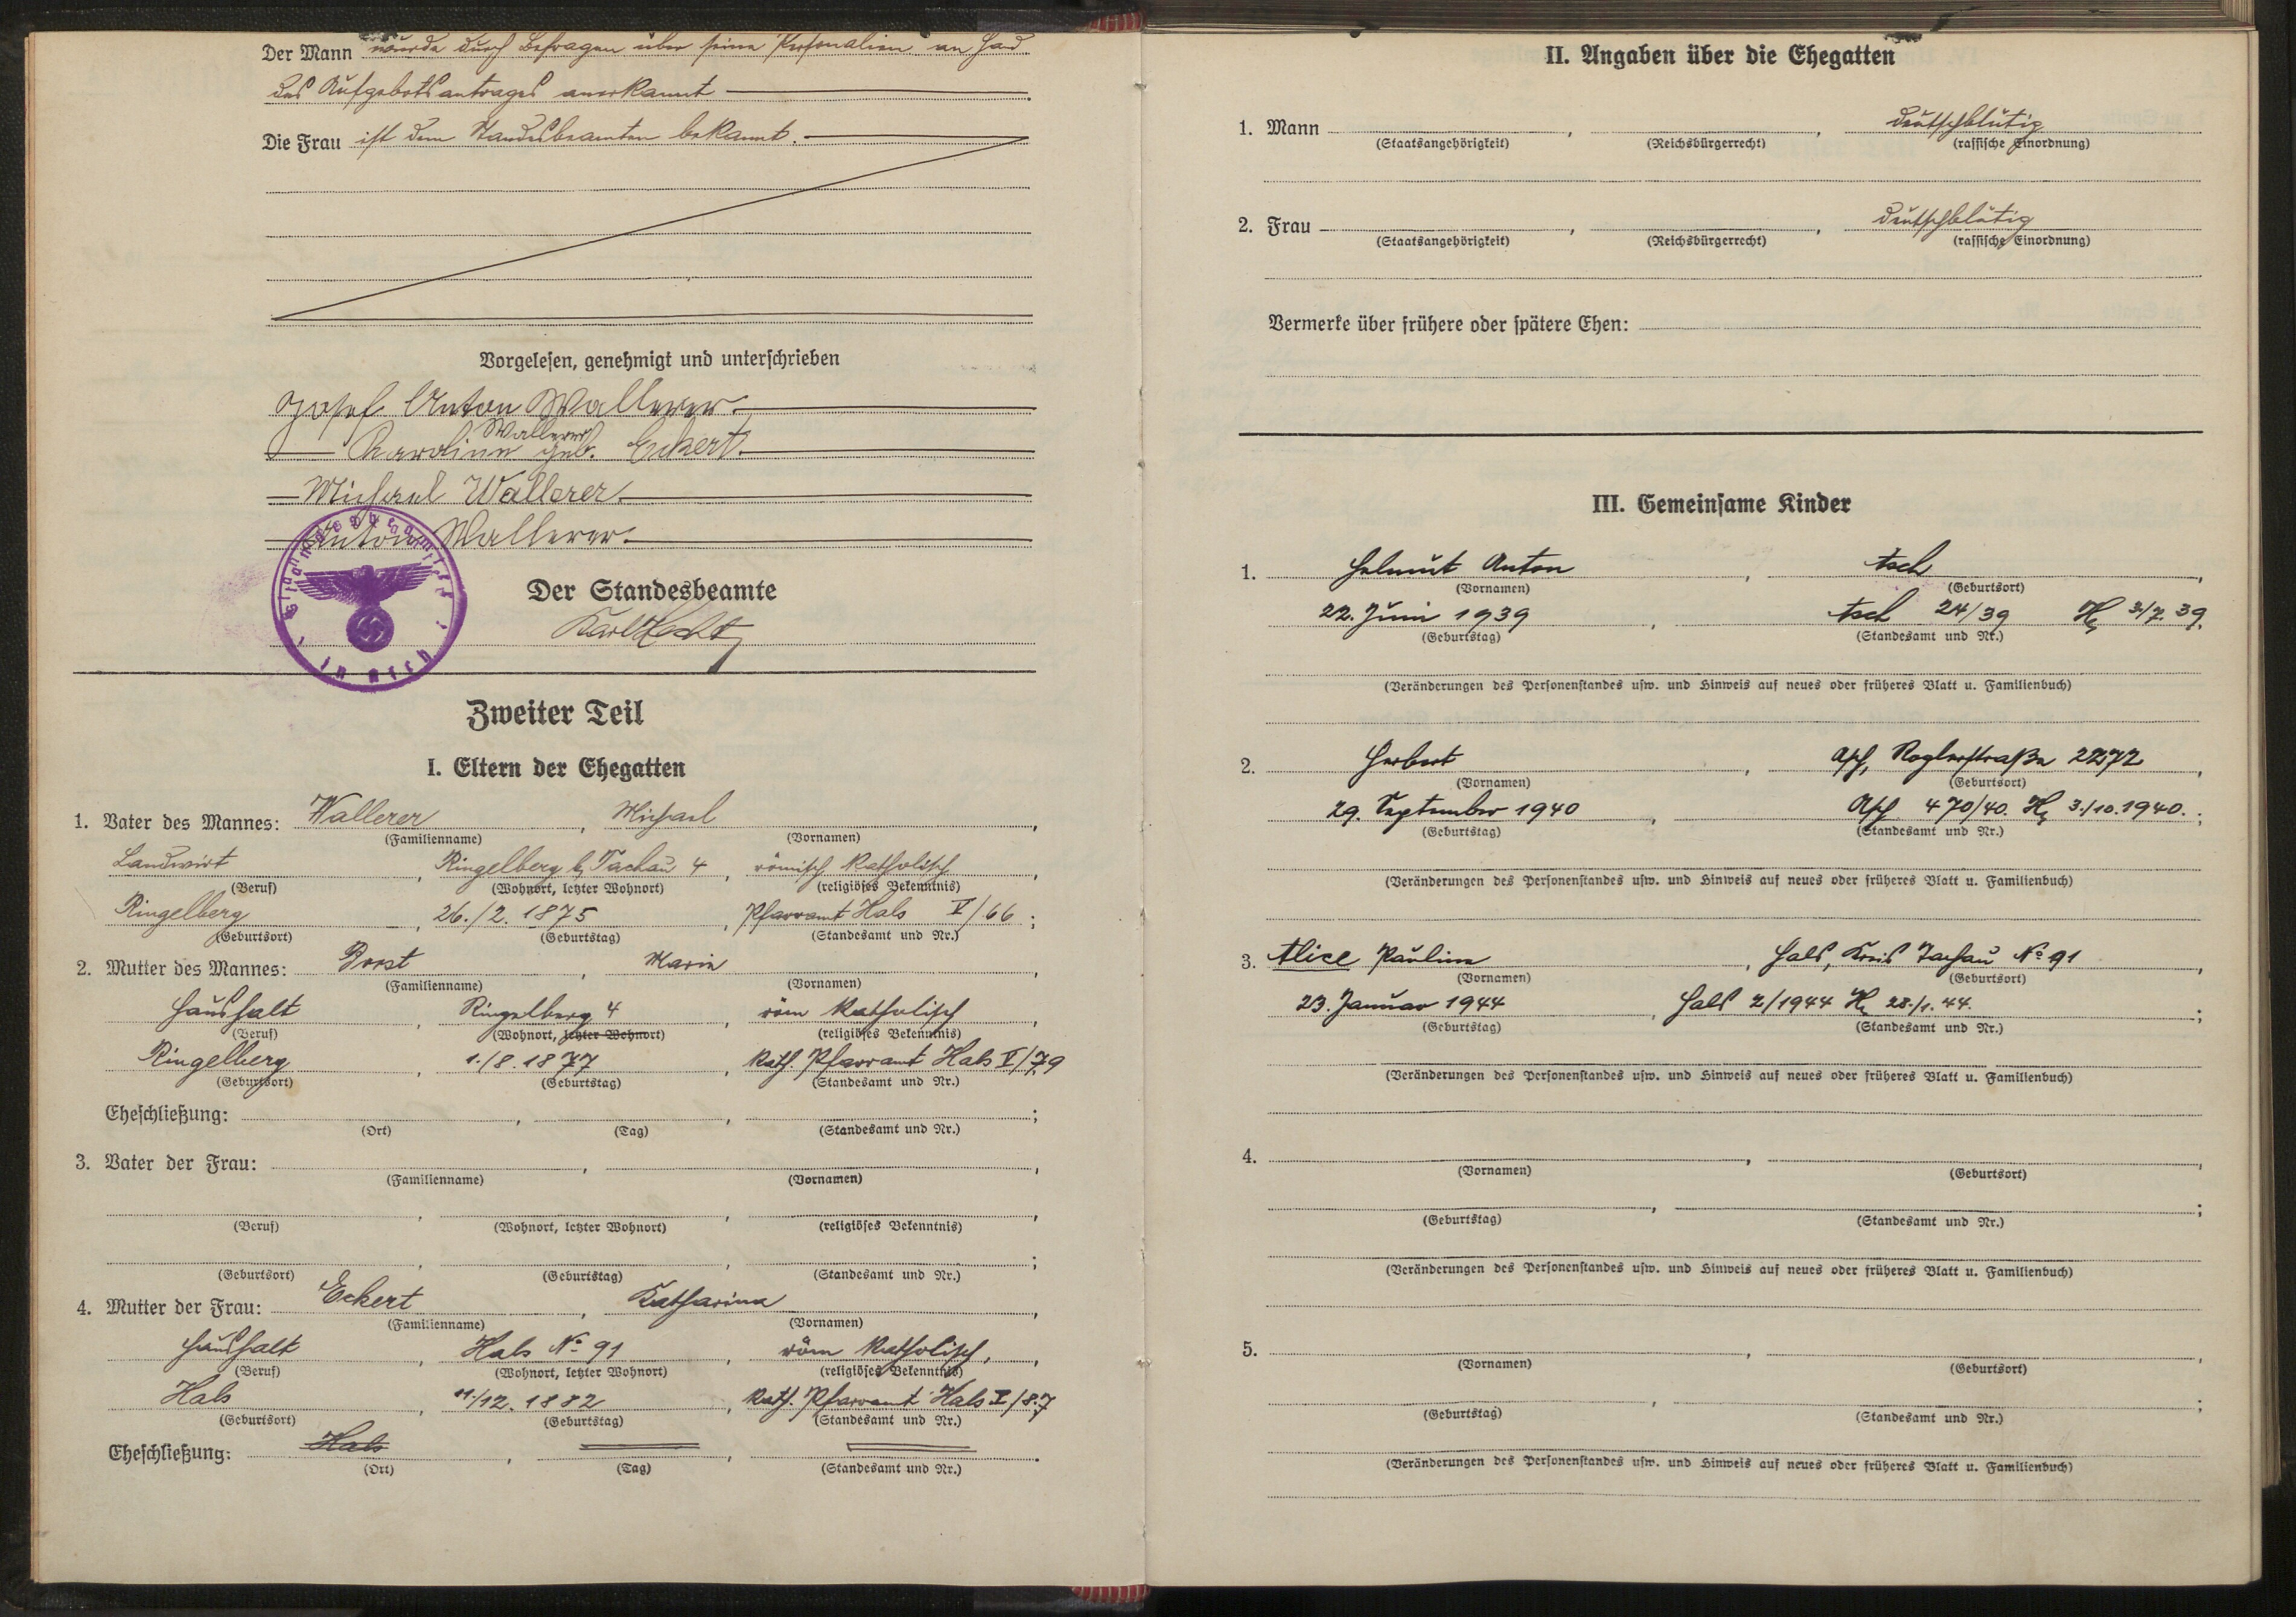 Der Mann wurde durch Befragen über seine Personalien an Hand
des Aufgebotsantrages anerkannt
Die Frau ist dem Standesbeamten bekannt.
Vorgelesen, genehmigt und unterschrieben
Josef Anton Wallerer
Wallerer
Karoline geb. Eckert.
Michael Wallerer
Anton Wallerer
Der Standesbeamte
in Asch
Zweiter Teil
I. Eltern der Ehegatten
1. Vater des Mannes: Wallerer, Michael,
(Familienname) (Vornamen)
Landwirt, Ringelberg b. Tachau 4, römisch katholisch,
(Beruf) (Wohnort, letzter Wohnort) (religiöses Bekenntnis)
Ringelberg, 26./2. 1875, Pfarramt Hals V/66;
(Geburtsort) (Geburtstag) (Standesamt und Nr.)
2. Mutter des Mannes: Marie,
(Familienname) (Vornamen)
Haushalt, Ringelberg 4, röm katholisch,
(Beruf) (Wohnort, letzter Wohnort) (religiöses Bekenntnis)
Ringelberg, 1./8. 1877, kath. Pfarramt Hals V/79
(Geburtsort) (Geburtstag) (Standesamt und Nr.)
Eheschließung: , , ;
(Ort) (Tag) (Standesamt und Nr.)
3. Vater der Frau: , ,
(Familienname) (Vornamen)
, , ,
(Beruf) (Wohnort, letzter Wohnort) (religiöses Bekenntnis)
, , ;
(Geburtsort) (Geburtstag) (Standesamt und Nr.)
4. Mutter der Frau: Eckert, Katharina,
(Familienname) (Vornamen)
Haushalt, Hals No 91, röm katholisch,
(Beruf) (Wohnort, letzter Wohnort) (religiöses Bekenntnis)
Hals, 11./12. 1882, kath. Pfarramt Hals I/87
(Geburtsort) (Geburtstag) (Standesamt und Nr.)
Eheschließung: Hals, , .
(Ort) (Tag) (Standesamt und Nr.)
II. Angaben über die Ehegatten
1. Mann , , deutschblütig
(Staatsangehörigkeit) (Reichsbürgerrecht) (rassische Einordnung)
2. Frau , , deutschblütig
(Staatsangehörigkeit) (Reichsbürgerrecht) (rassische Einordnung)
Vermerke über frühere oder spätere Ehen:
III. Gemeinsame Kinder
1. Helmut Anton, Asch,
(Vornamen) (Geburtsort)
22. Juni 1939, Asch 24/39 3./7. 39.
(Geburtstag) (Standesamt und Nr.)
(Veränderungen des Personenstandes usw. und Hinweis auf neues oder früheres Blatt u. Familienbuch)
2. Herbert, Asch, Roglerstraße 2272,
(Vornamen) (Geburtsort)
29. September 1940, Asch 470/40. 3./10. 1940.;
(Geburtstag) (Standesamt und Nr.)
(Veränderungen des Personenstandes usw. und Hinweis auf neues oder früheres Blatt u. Familienbuch)
3. Alice Pauline, Hals, Kreis Tachau No 91,
(Vornamen) (Geburtsort)
23. Januar 1944, Hals 2/1944 28./1. 44.;
(Geburtstag) (Standesamt und Nr.)
(Veränderungen des Personenstandes usw. und Hinweis auf neues oder früheres Blatt u. Familienbuch)
4. , ,
(Vornamen) (Geburtsort)
, ;
(Geburtstag) (Standesamt und Nr.)
(Veränderungen des Personenstandes usw. und Hinweis auf neues oder früheres Blatt u. Familienbuch)
5. , ,
(Vornamen) (Geburtsort)
, ;
(Geburtstag) (Standesamt und Nr.)
(Veränderungen des Personenstandes usw. und Hinweis auf neues oder früheres Blatt u. Familienbuch)